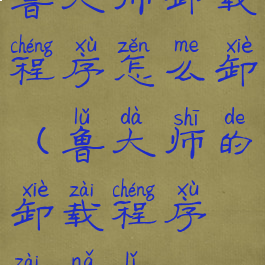 鲁大师卸载
chéng xù zěn me xiè
程序怎么卸
lǔ dà shī de
（鲁大师的
xiè zài chéng xù
卸载程序
zài nǎ lǐ